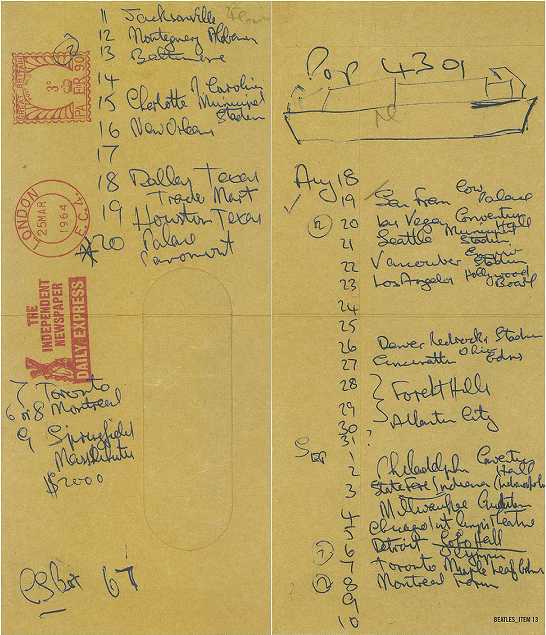 11 Jacksonville
12 Montgomery Alabama
2 13 Baltimore
14
15 Charlotte N Carolina
Municipal
Stadium
16 New Orleans
17
18 Dallas Texas
Trade Mart
19 Houston Texas
20 Palace
Paramount
3D
LONDON
25 MAR
1964
E.C.4
THE
INDEPENDENT
NEWSPAPER
DAILY EXPRESS
7 Toronto
6 or 8 Montreal
9 Springfield
$2000
67
Pop 4301
Aug 18
19 San Fran Cow Palace
2 20 Las Vegas Convention Hall
21 Seattle Municipal
Stadium
22 Vancouver Empire Stadium
23 Los Angeles Hollywood
Bowl
24
25
26 Denver Redrocks Stadium
27 Cincinatti Ohio Gdns
28 } Forest Hills
29
30 Atlantic City
31 ?
Sep 1
2 Philadelph Conventn
Hall
3 State Fare Indiana
4 Milwaukee
5 Chicago
6 Detroit
Olympia
7 Toronto Maple Leaf Gdns
8 Montreal Forum
9
10
BEATLES_ITEM 13